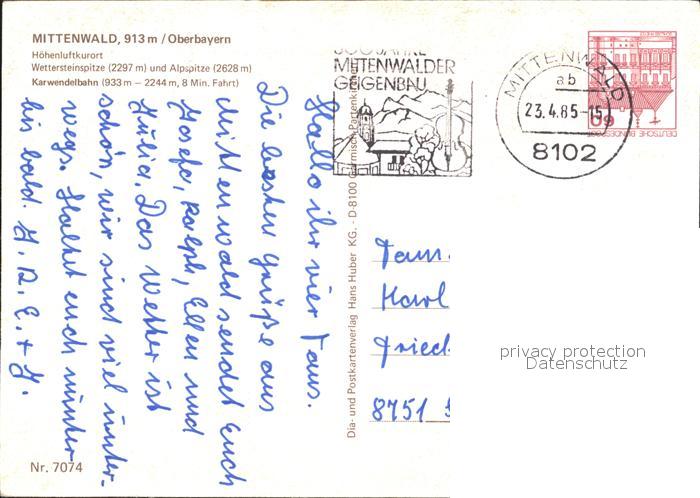 MITTENWALD, 913 m / Oberbayern
Höhenluftkurort
Wettersteinspitze (2297 m) und Alpspitze (2628 m)
Karwendelbahn (933 m – 2244 m, 8 Min. Fahrt)
300 JAHRE
MITTENWALDER
GEIGENBAU
MITTENWALD
ab
23.4.85-15
8102
60
DEUTSCHE BUNDESPOST
Hallo ihr vier
Die besten Grüße aus
Mittenwald sendet Euch
Ralph, Ellen und
Julia. Das Wetter ist
schön, wir sind viel unter-
wegs. Haltet euch munter
bis bald. H. R. E. + J.
Dia- und Postkartenverlag Hans Huber KG. - D-8100 Garmisch-Partenkirchen
Karl
Fried
8751
privacy protection
Datenschutz
Nr. 7074